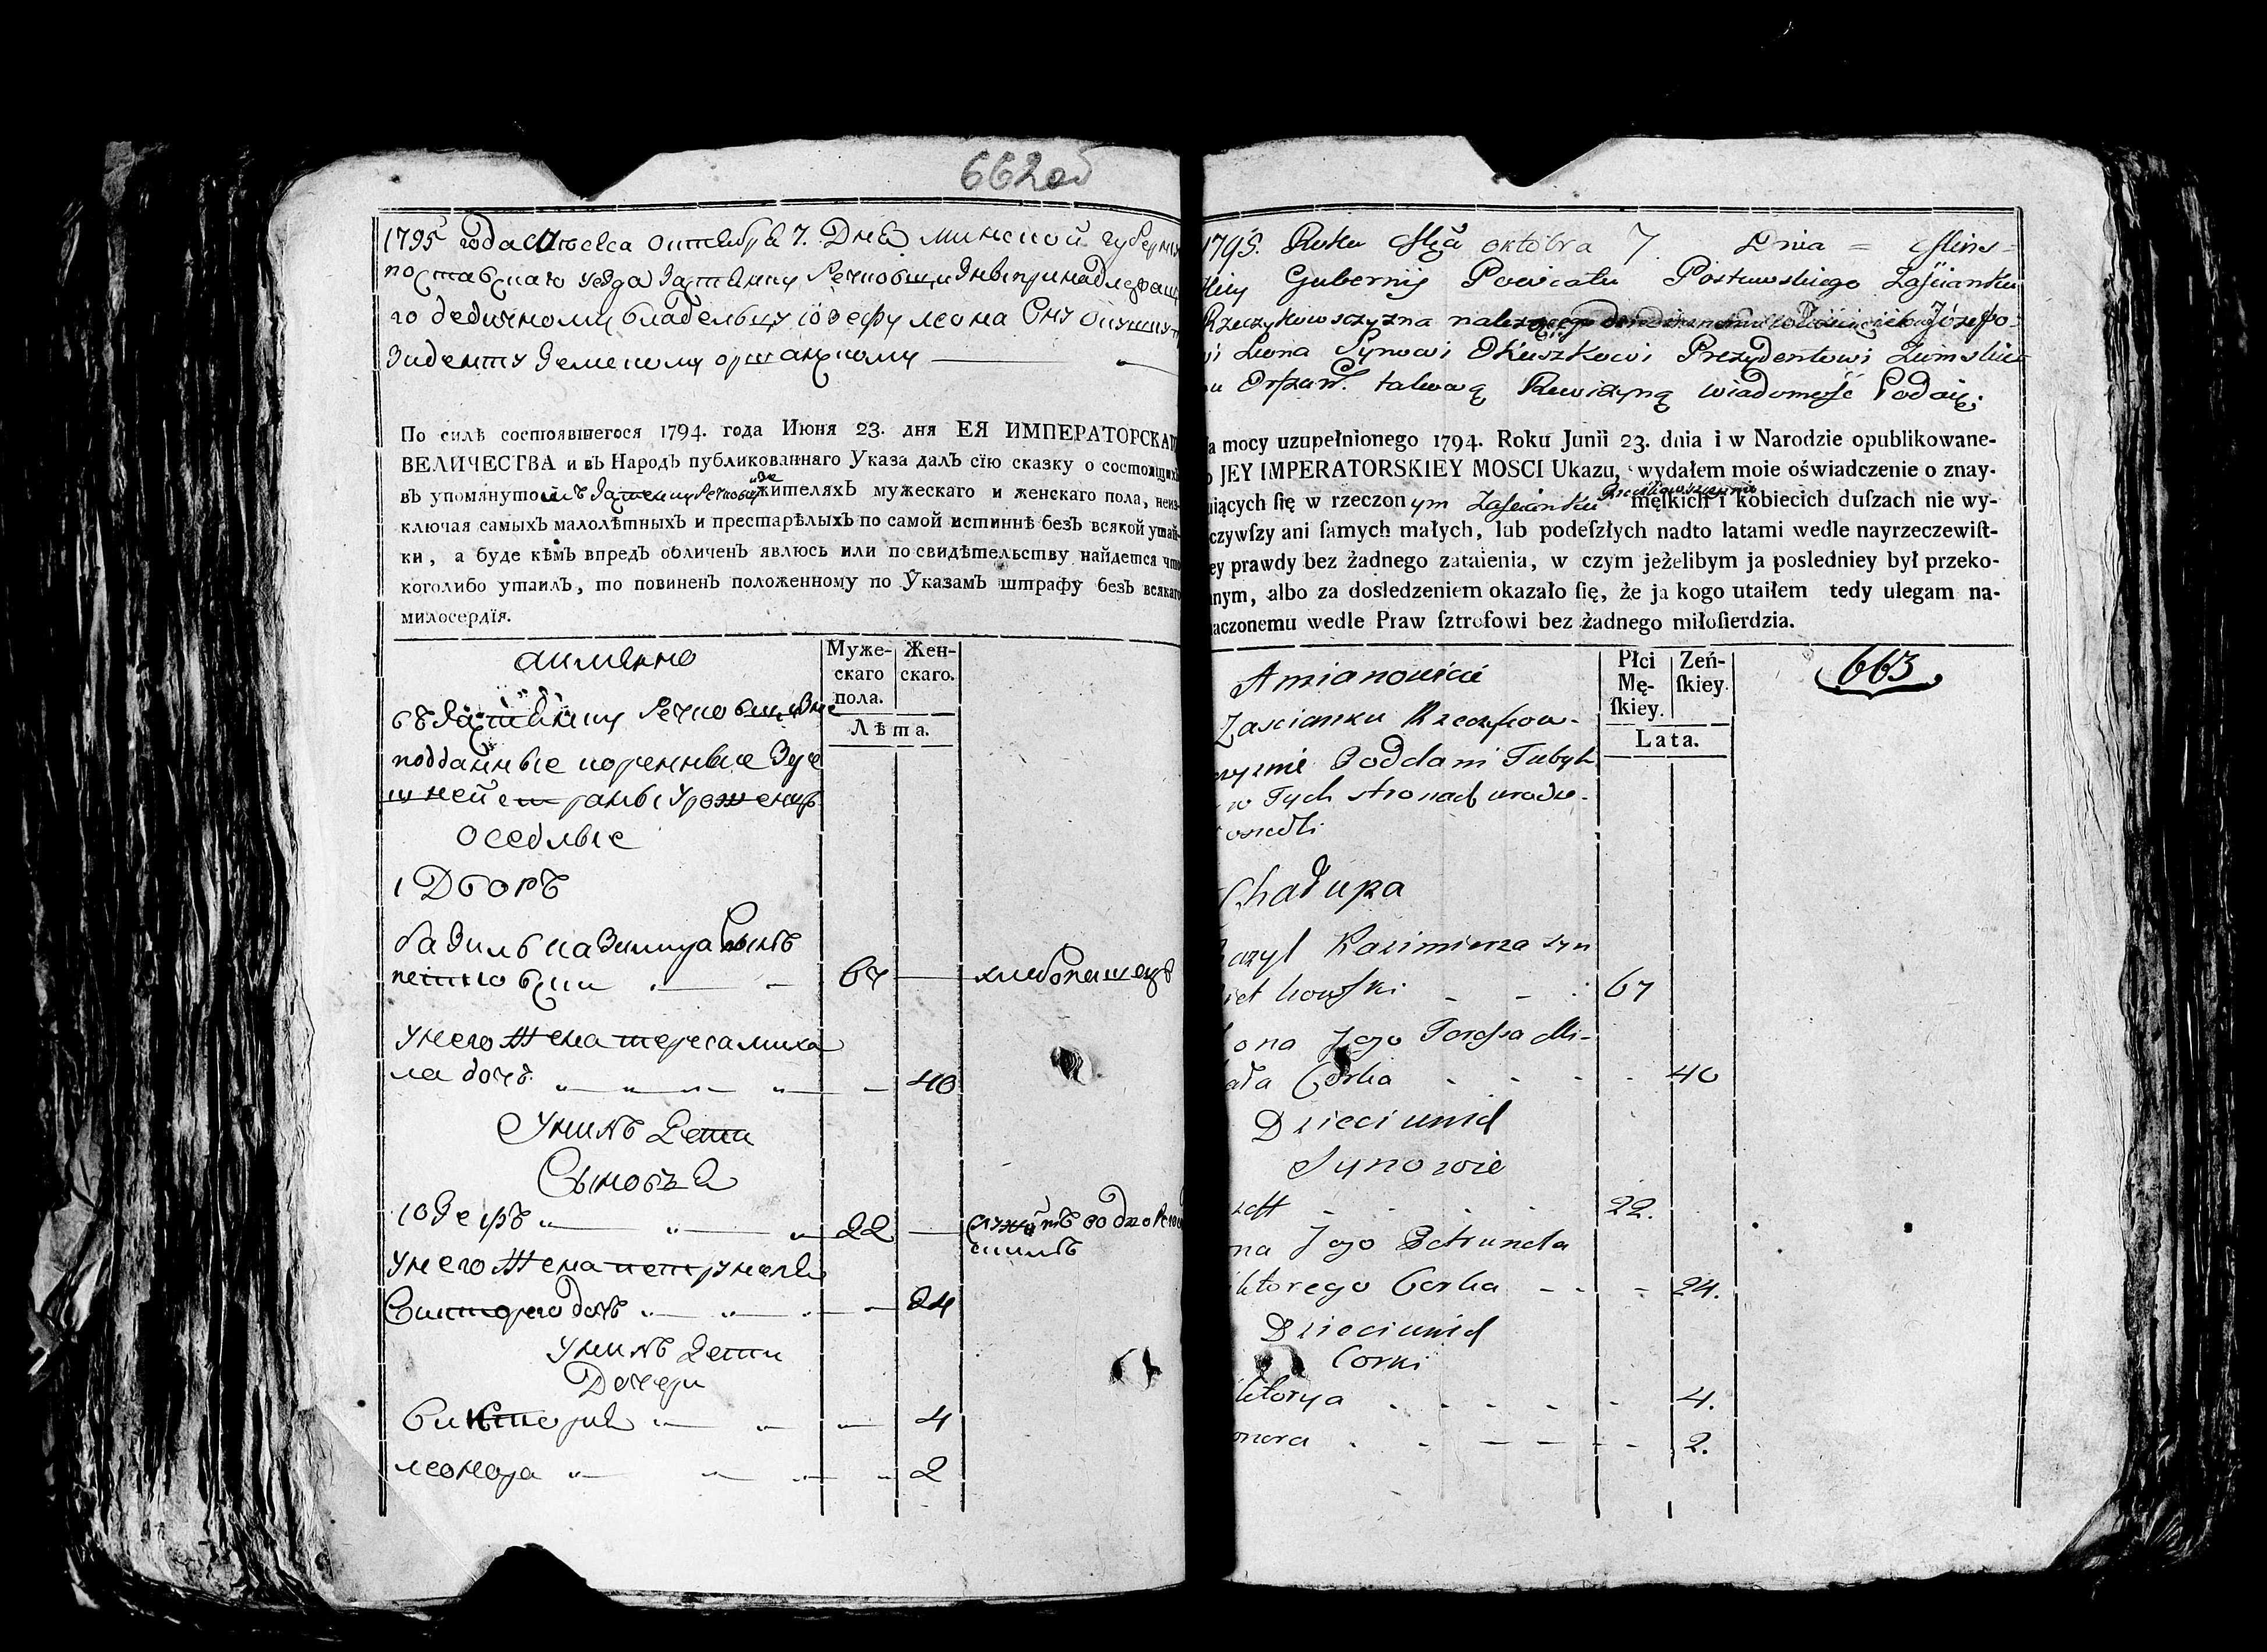 662об
1795 года месеца октебра 7. Дня минской губерни
поставскаго уезда застенку Речковщизне принадлежащ
го дедичному владельцу їозефу леона Сну
зиденту земскому оршанскому
По силѣ состоявшегося 1794. года Июня 23. дня ЕЯ ИМПЕРАТОРСКАГ
ВЕЛИЧЕСТВА и въ Народъ публикованнаго Указа далъ сїю сказку о состоящихъ
въ упомянутомъ застенку Речковщизне жителяхъ мужескаго и женскаго пола, неиз-
ключая самыхъ малолѣтныхъ и престарѣлыхъ по самой истиннѣ безъ всякой утай-
ки, а буде кѣмъ впредъ обличенъ явлюсь или по свидѣтельству найдется что
коголибо утаилъ, то повиненъ положенному по Указамъ штрафу безъ всякаго
милосердїя.
аимянно
Муже-скаго пола.
Жен-скаго.
Лѣта.
въ застенку Речковщизне
подданные коренные зде
шней страны уроженцы
оседлые
1 Дворъ
базиль казимира Сынъ
петковски 67 — хлебопашецъ
унего Жена тереса миха
ла дочъ 40
Унихъ дети
Сыновья
юзефъ 22 —
унего Жена петрунеля
викторего дочъ 24
унихъ дети
Дочери
виктория 4
леонора 2
1795. Roku Msca oktobra 7. Dnia = Mins=
kiey Gubernij Powiatu Postawskiego Zaścianku
Rzeczkowszczyzna Józefo=
wi Leona Synowi Okuszkowi Prezydentowi Ziemskie
mu Orszań. takową Rewizyną wiadomość Podaię.
a mocy uzupełnionego 1794. Roku Junii 23. dnia i w Narodzie opublikowane-
o JEY IMPERATORSKIEY MOSCI Ukazu, wydałem moie oświadczenie o znay-
uiących ſię w rzeczonym Zaścianku Rzeczkowszczyznie męſkich i kobiecich duſzach nie wy-
czywſzy ani ſamych małych, lub podeſzłych nadto latami wedle nayrzeczewiſt-
ey prawdy bez żadnego zataienia, w czym jeżelibym ja posledniey był przeko-
nym, albo za dosledzeniem okazało ſię, że ja kogo utaiłem tedy ulegam na-
aczonemu wedle Praw ſztrofowi bez żadnego miłoſierdzia.
Amianowicie
Płci Mę-ſkiey.
Zeń-ſkiey.
Lata.
663
Zascianku Rzeczkow-
czyznie Poddani Tubyl
w Tych stronach urodze-
osiedli
Chałupa
Bazyl Kazimierza syn
iet kowski 67
ona Jego Teressa Mi-
ała Corka 40
Dzieci unich
Synowie
zeff 22.
na Jego Petrunela
iktorego Corka 24.
Dzieci unich
Corki
iktorya 4.
onora 2.